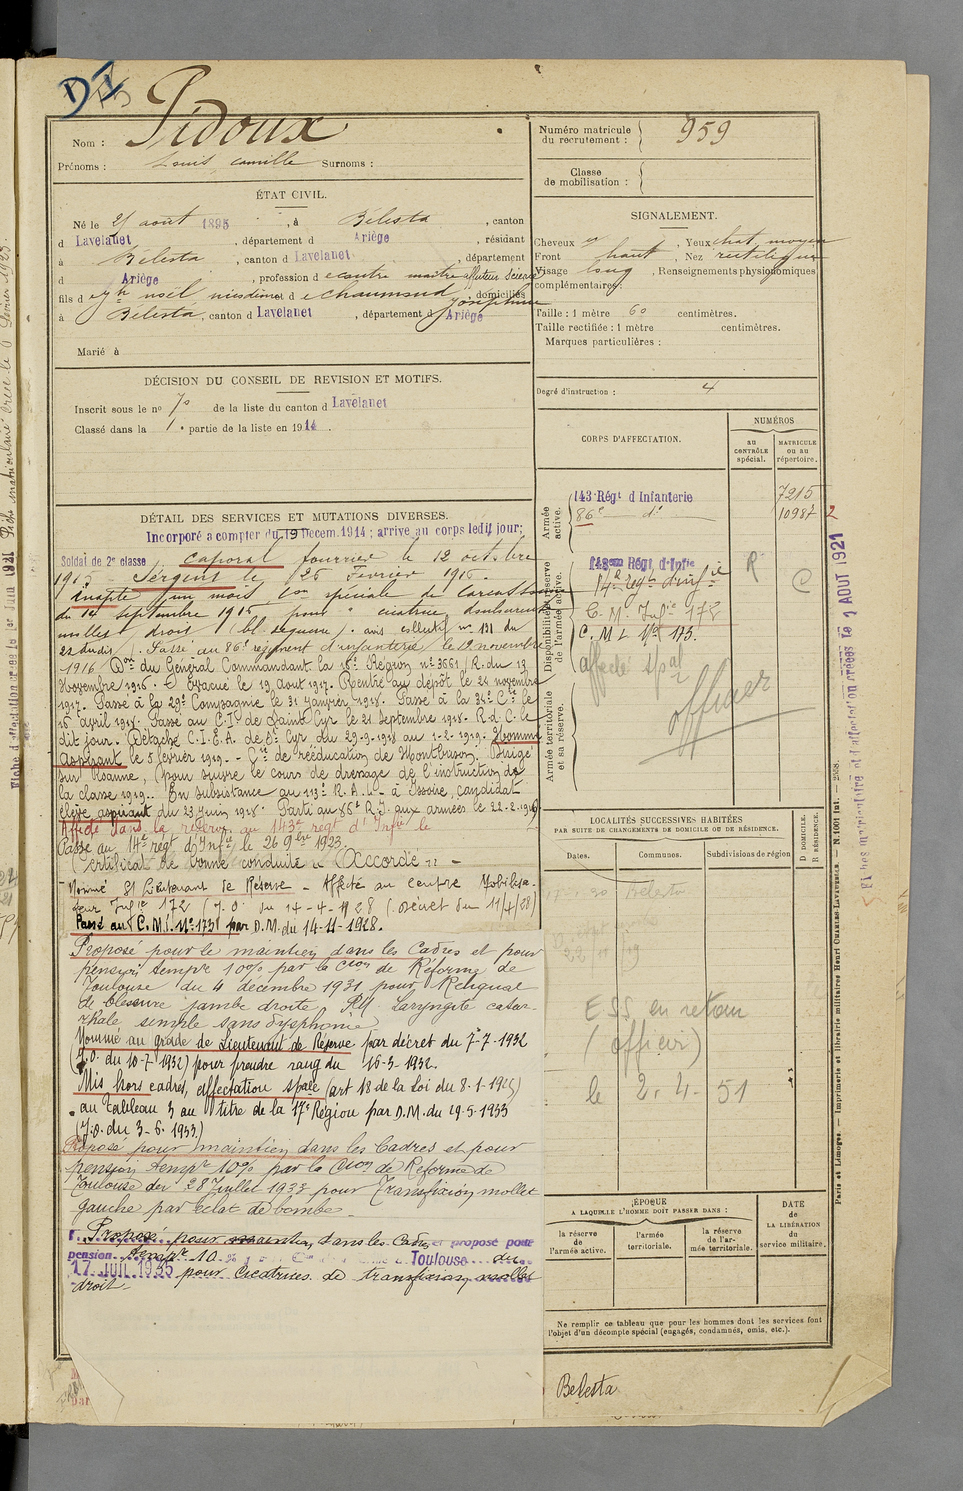 DI
Nom : Pidoux
Prénoms : Louis, Camille Surnoms :
ÉTAT CIVIL.
Né le 21 août 1895, à Bélesta, canton
d Lavelanet, département d Ariège, résidant
à Bélesta, canton d Lavelanet, département
d Ariège, profession d contre maitre
fils d noël, d Chaumsud Joséphine domiciliés
à Bélesta, canton d Lavelanet, département d Ariège
Marié à
DÉCISION DU CONSEIL DE REVISION ET MOTIFS.
Inscrit sous le no 70 de la liste du canton d Lavelanet
Classé dans la 1e partie de la liste en 1914.
DÉTAIL DES SERVICES ET MUTATIONS DIVERSES.
Incorporé a compter du 19 Decem. 1914 ; arrive au corps ledit jour;
Soldat de 2e classe caporal fourrier le 12 octobre
1915 Sergent le 26 Fevrier 1916.
Inapte un mois, Con spéciale de Carcassonne
du 14 septembre 1916 pour " cicatrice douloureuse
mollet droit (bl. de guerre). avis collectif no 131 du
22 dudit. Passé au 86e régiment d'infanterie le novembre
1916 Don du Général Commandant la 16e Région no 3661/R. du 13
Novembre 1916. Evacué le 19 Aout 1917. Rentré au dépôt le 24 novembre
1917. Passé à la 29e Compagnie le 31 janvier 1918. Passé à la 34e Cie le
16 avril 1918. Passé au C.I. de Saint Cyr le 21 septembre 1918. R.d.C. le
dit jour. Détaché C.I.E.A. de St Cyr du 29-9-1918 au 1-2-1919. Nommé
aspirant le 5 février 1919. - Cie de rééducation de Montbrison. Dirigé
sur Roanne, (pour suivre le cours de dressage de l'instruction de
la classe 1919. En subsistance au 113e R.A.L. à Issoire, candidat
élève aspirant du 23 juin 1918. Parti au 86e R.I. aux armées le 22-2-1919
Affecté dans la réserve au 143e regt d'Infie le
Passé au 14e régt d'Infie, le 26 9bre 1923.
Certificat de bonne conduite "Accordé"
Nommé St Lieutenant de Réserve - Affecté au centre Mobilisa-
teur Infie 172 (J.O. du 14-4-1928 (Décret du 11/4/28)
Passé au C.M.I. No 173 par D.M. du 14-11-1928.
Proposé pour le maintien dans les Cadres et pour
pension tempre 10% par la Cion de Réforme de
Toulouse du 4 décembre 1931 pour Reliquat
de blessure jambe droite, Laryngite catar-
rhale simple sans dysphonie
Nommé au grade de Lieutenant de Réserve par décret du 7-7-1932
(J.O. du 10-7-1932) pour prendre rang du 16-3-1932.
Mis hors cadres, affectation spale (art 18 de la loi du 8-1-1925)
au Tableau 3 au titre de la 17e Région par D.M. du 19-5-1933
(J.O. du 3-6-1933)
Proposé pour maintien dans les Cadres et pour
pension tempre 10% par la Cion de Réforme de
Toulouse du 28 Juillet 1933 pour Transfixion mollet
gauche par éclat de bombe.
Proposé pour maintien dans les Cadres et proposé pour
pension tempre 10 % Toulouse du
17 JUIL 1935 pour Cicatrices de transfixion mollet
droit
Numéro matricule du recrutement : 959
Classe de mobilisation :
SIGNALEMENT.
Cheveux Yeux chat. moyen
Front haut, Nez rectiligne
Visage long, Renseignements physionomiques
complémentaires :
Taille : 1 mètre 60 centimètres.
Taille rectifiée : 1 mètre centimètres.
Marques particulières :
Degré d'instruction : 4
CORPS D'AFFECTATION.
NUMÉROS
au CONTRÔLE spécial.
MATRICULE ou au répertoire.
Armée active.
143 Régt d Infanterie 7215
86e do 10987 2
Disponibilité et réserve de l'armée active.
143eme Régt d'Infie
14e Regt d'infie R C
C. M. Infie 172
C. M. I. No 173.
affecté spal
officier
Armée territoriale et sa réserve.
LOCALITÉS SUCCESSIVES HABITÉES
PAR SUITE DE CHANGEMENTS DE DOMICILE OU DE RÉSIDENCE.
Dates. Communes. Subdivisions de région
D DOMICILE. R RÉSIDENCE.
Belesta
22 11 19
ESS en retour
(officier)
le 2. 4. 51
ÉPOQUE
A LAQUELLE L'HOMME DOIT PASSER DANS :
la réserve de l'armée active.
l'armée territoriale.
la réserve de l'armée territoriale.
DATE de LA LIBÉRATION du service militaire.
Ne remplir ce tableau que pour les hommes dont les services font
l'objet d'un décompte spécial (engagés, condamnés, omis, etc.).
Belesta
Paris et Limoges. — Imprimerie et librairie militaires Henri CHARLES-LAVAUZELLE. — N. 1001 Int. — 2568.
Fiches matriculaire et d'affectation créées le 1 AOUT 1921